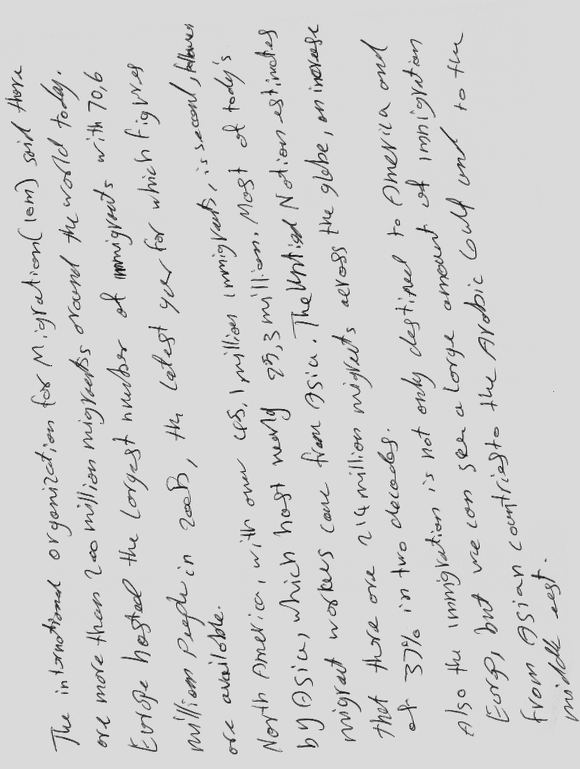 The international organization for Migration (iom) said there
are more than 200 million migrants around the world today.
Europe hosted the Largest number of immigrants with 70,6
million People in 2005, the latest year for which figures
are available.
North America, with over 45,1 million immigrants, is second, follows
by Asia, which host nearly 25,3 million. Most of today's
migrant workers come from Asia. The United Nation estimates
that there are 214 million migrants across the globe, an increase
of 37% in two decades.
Also the immigration is not only destined to America and
Eurp, but we can see a large amount of immigration
from Asian countries to the Arabic Gulf and to the
middle east.